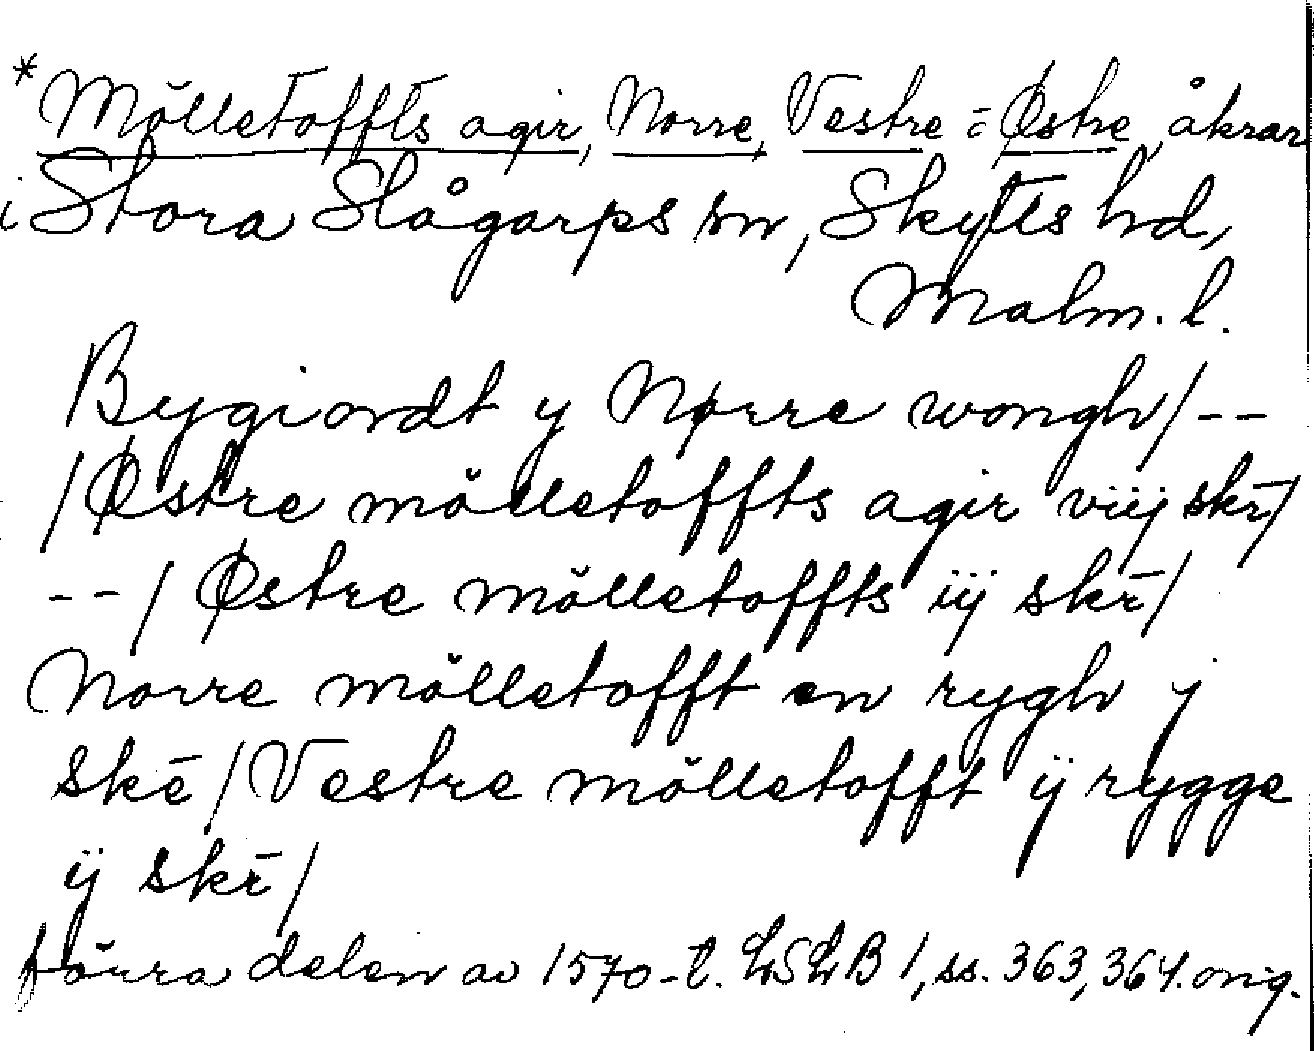 *Mölletoffts agir, Norre, Vestre = Østre, åkrar
i Stora Slågarps sn, Skytts hd,
Malm. l.
Bygiordt y Nørre wongh/--
/Østre mölletoffts agir viij skr̄/
--/Østre mölletoffts iij skr̄/
Norre mölletofft en rygh j
skē/Vestre mölletofft ij rygge
ij skr̄/
förra delen av 1570-t. LSLB 1, ss. 363, 364. orig.